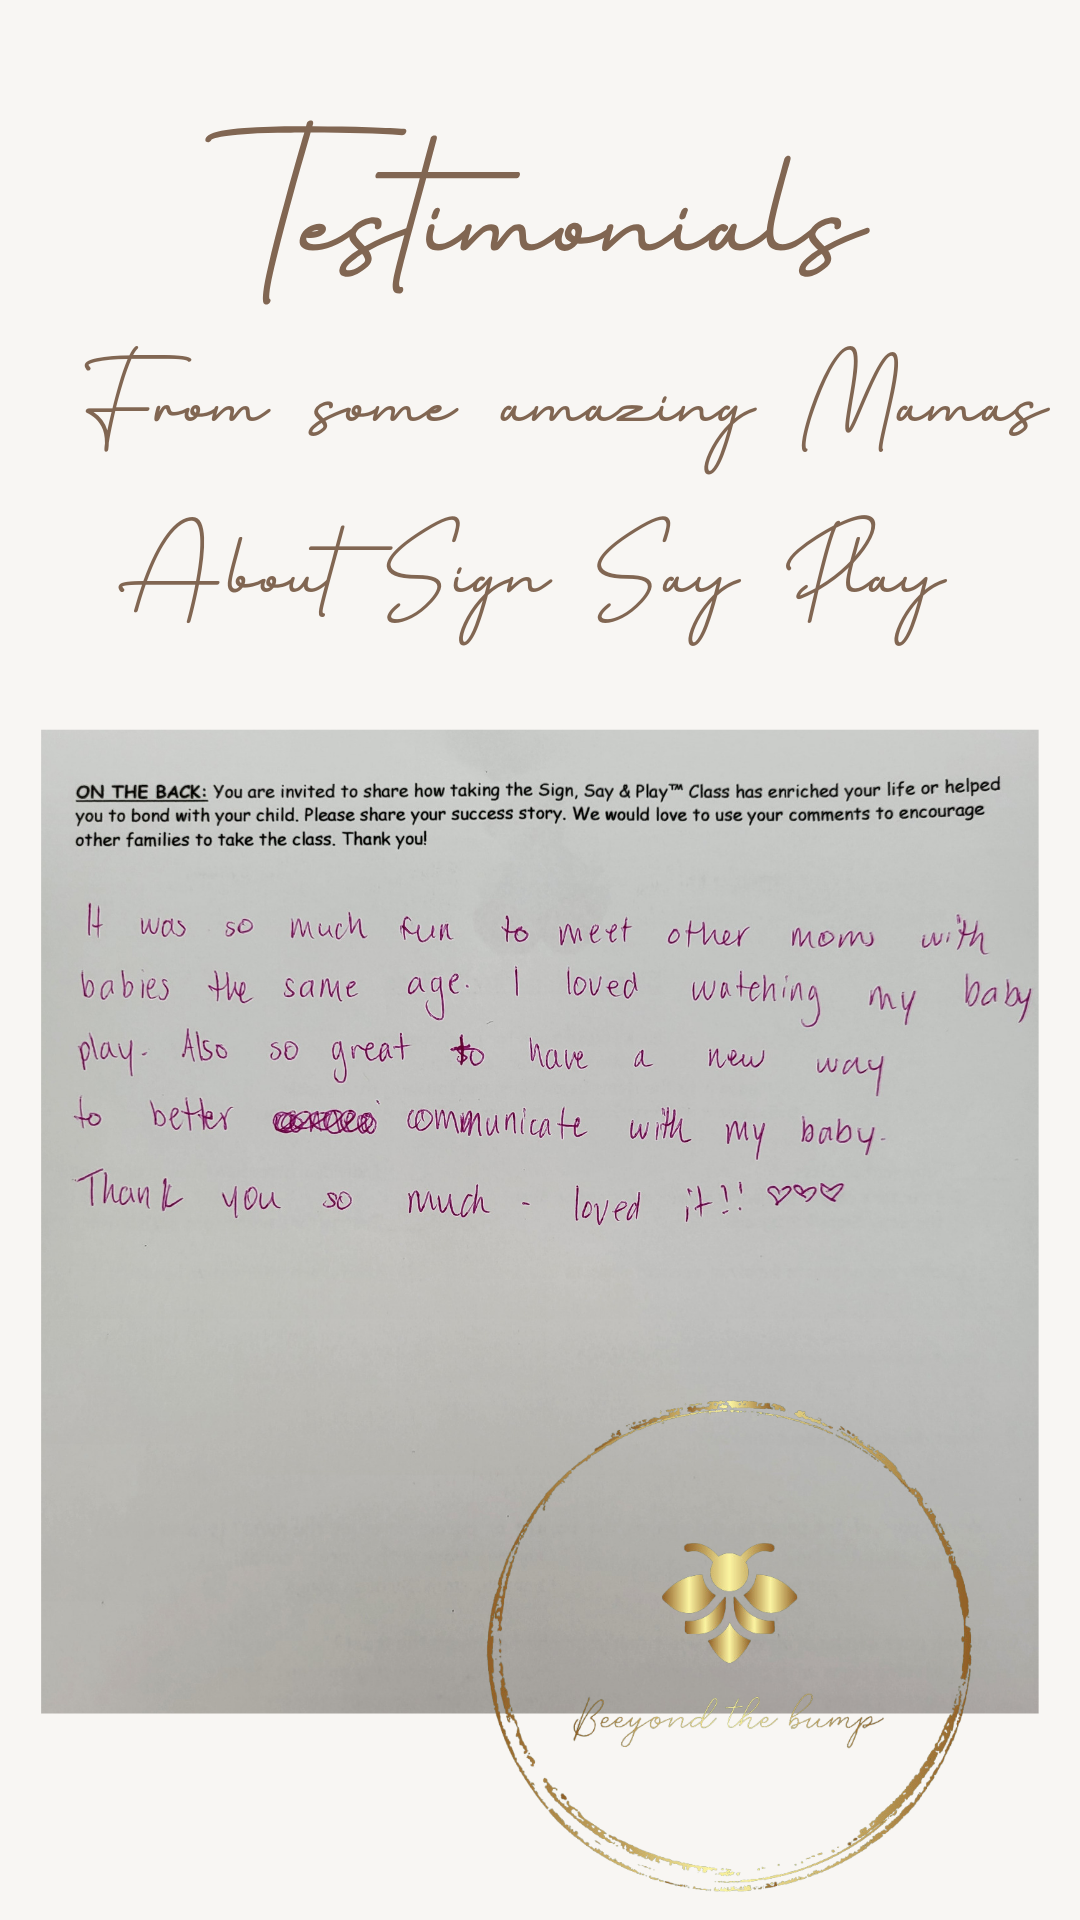 Testimonials
From some amazing Mamas
About Sign Say Play
ON THE BACK: You are invited to share how taking the Sign, Say & Play™ Class has enriched your life or helped
you to bond with your child. Please share your success story. We would love to use your comments to encourage
other families to take the class. Thank you!
It was so much fun to meet other moms with
babies the same age. I loved watching my baby
play. Also so great to have a new way
to better communicate with my baby.
Thank you so much - loved it!! ♡♡♡
Beeyond the bump